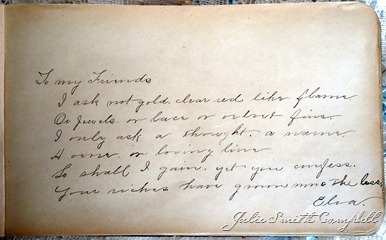 To my Friends
I ask not gold, clear red like flame.
Or Jewels, or lace or velvet fine.
I only ask a thought, a name,
A verse, or loving line
So shall I gain, yet you confess.
Your riches have grown none the less.
Elva.
Julie Smith Campbell